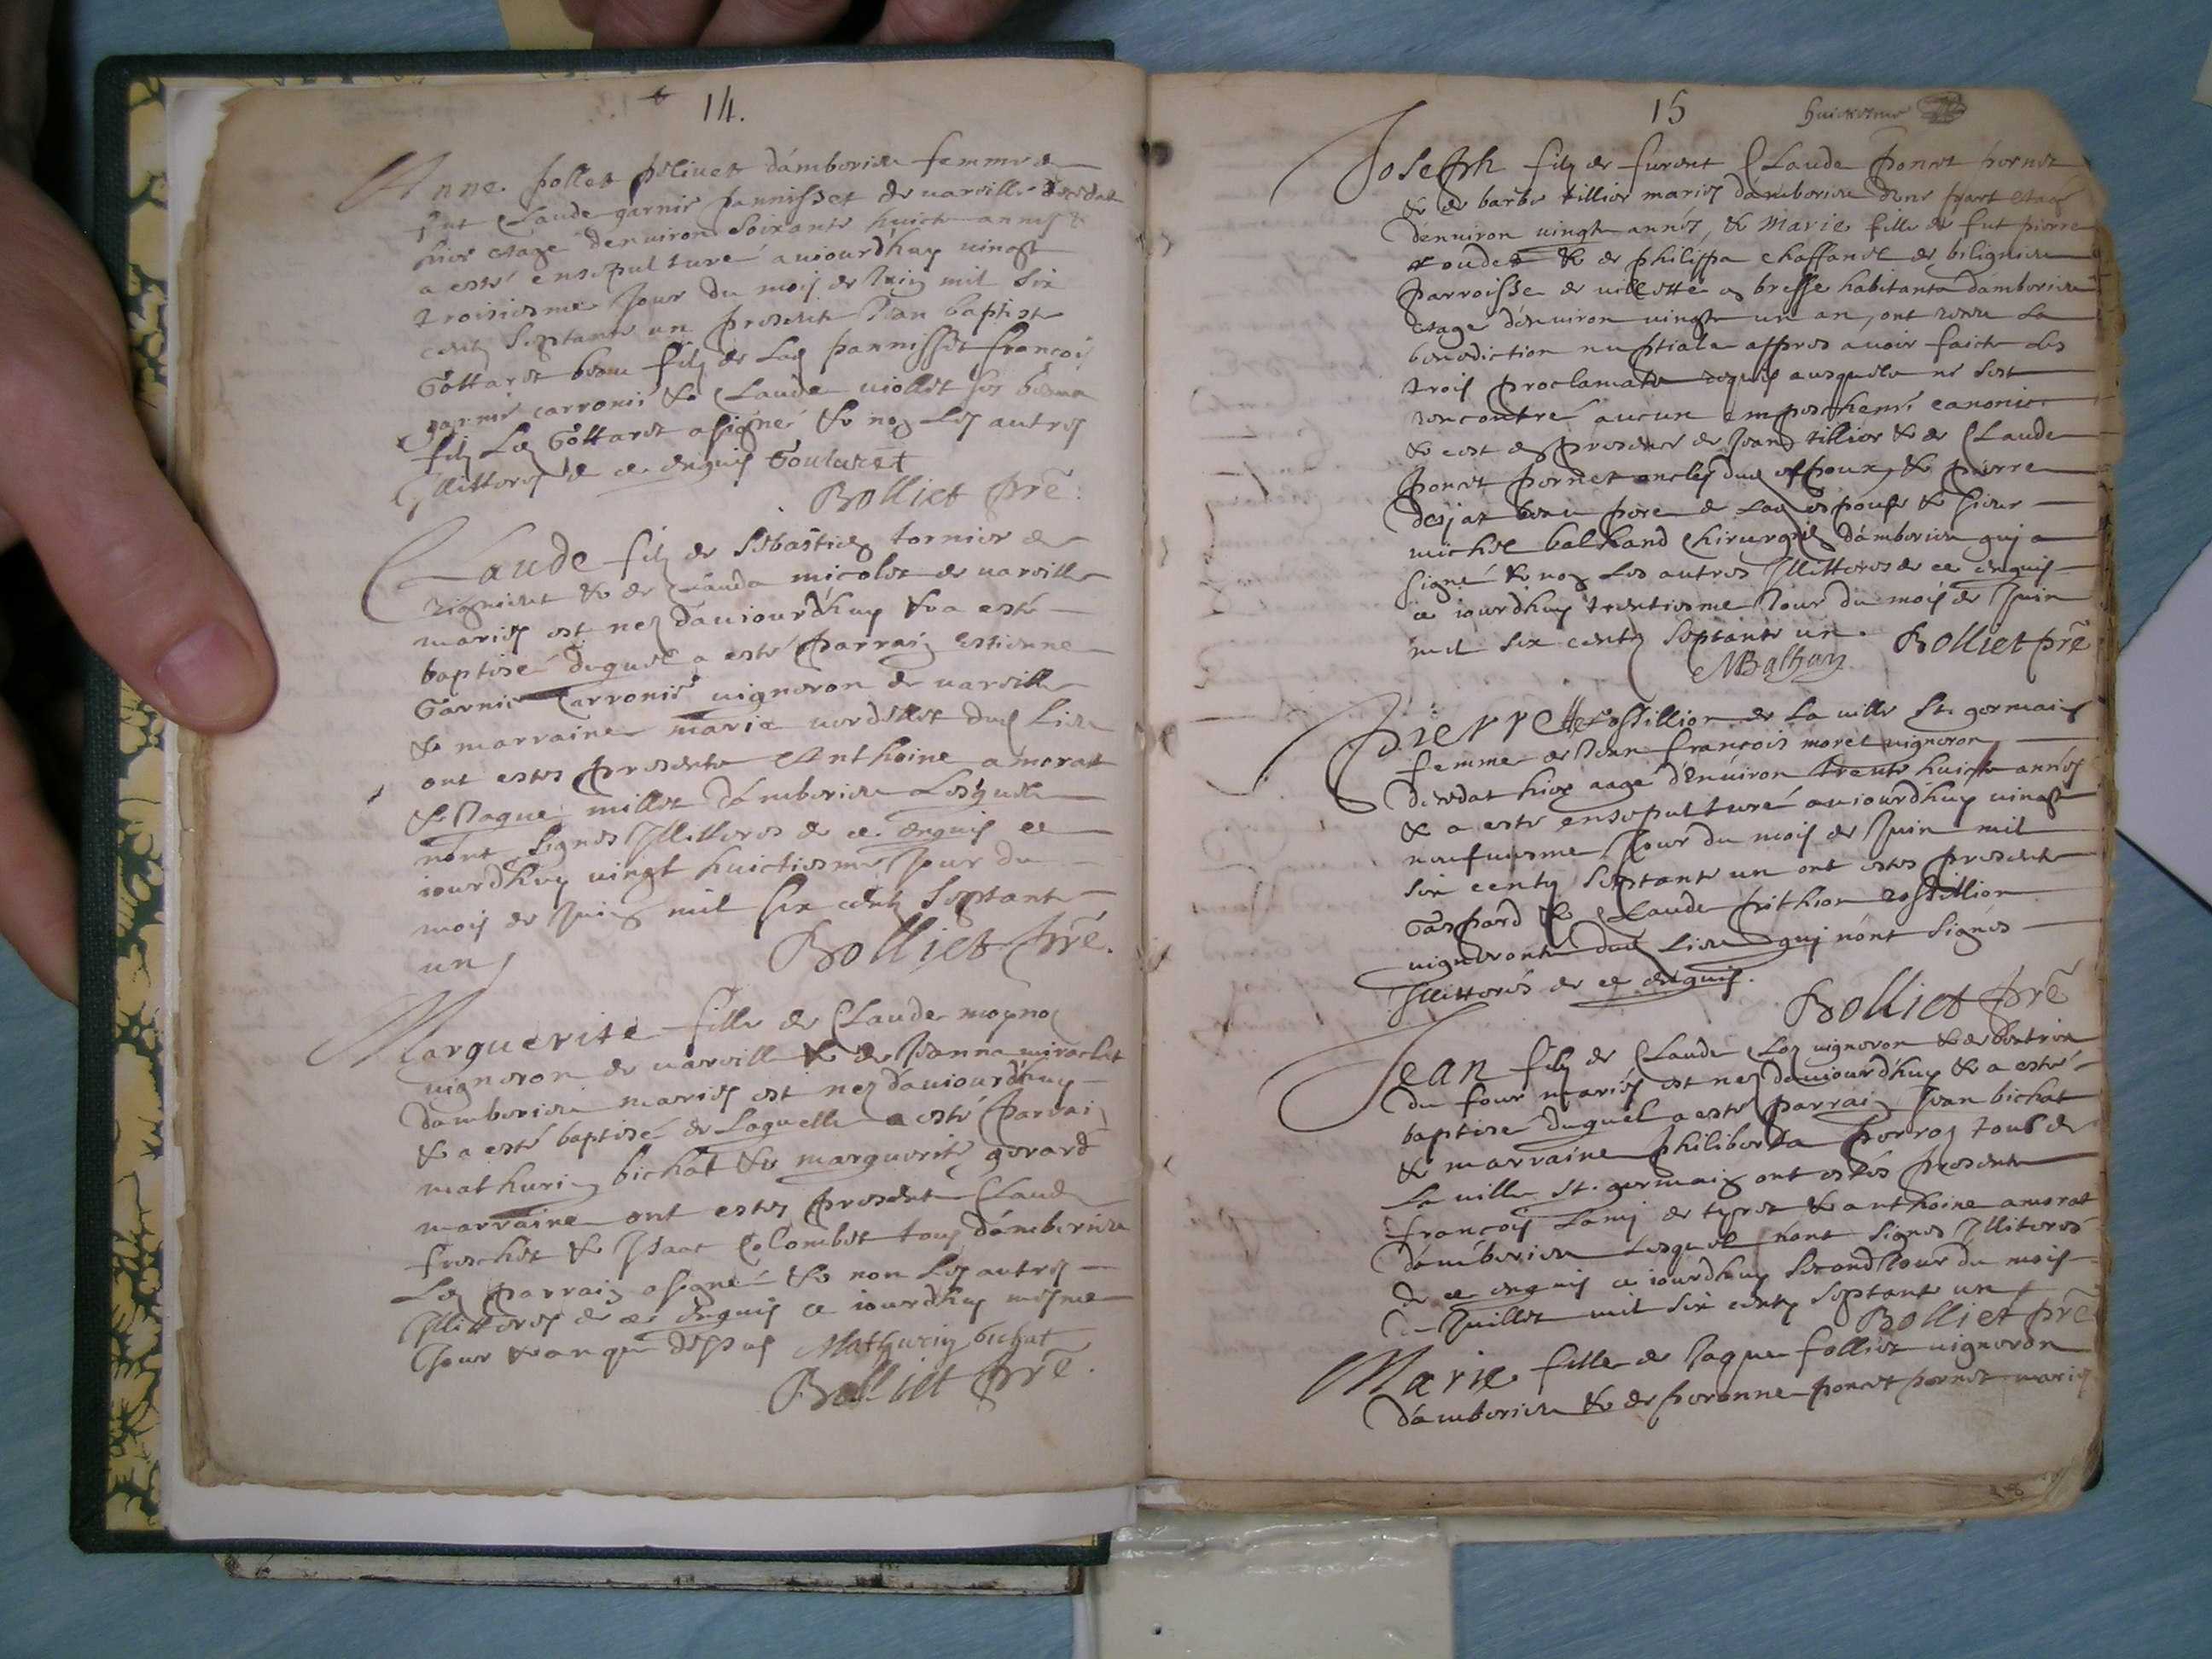 14.
Anne pollet pelivet dámberieu femme de
fut Claude garnier pannisset de vareille decedat
hier etage denviron soixante huict annes &
a esté ensepulturé aujourdhuy vingt
troisiesme Jour du mois de Juin mil six
centz septante un presents Jean baptiste
Gottaret beau filz de Lad pannisset francois
garnier carronier & Claude viollet ses beaux
filz Led Gottaret a signé & non Les autres
Illitteres de ce enquis Goutaret
Bolliet pre
Claude filz de Sebastien tornier de
& de Clauda micolet de vareille
maries est nez daujourdhuy & a esté
baptisé duquel a esté parrain estienne
Garnier Carronier vigneron de vareille
& marraine marie verdellet dud Lieu
ont estes presents Anthoine amorat
& Jaque millet dámberieu Lesquels
nónt signes Illitteres de ce enquis ce
jourdhuy vingt huictiesme Jour du
mois de Juin mil six centz septante
un
Bolliet pre.
Marguerite fille de Claude moyno
vigneron de vareille & de Jeanna miraclet
damberieu maries est nez daujourdhuy
& a esté baptisé de Laquelle a esté parrain
mathurin bichat & marguerite gerard
marraine ont estes presents Claude
freschet & Isaac Colombet tous dámberieu
Led parrain a signé & non Les autres
Illitteres de ce enquis ce jourdhuy mesme
Jour & an que dessus Mathurin bichat
Bolliet pre.
15
huictiesme
Joseph filz de furent Claude poncet pernet
& de barbe tillier maries dámberieu dune part etage
dénviron vingt annés, & Marie fille de fut pierre
& de philippa chaffanel de beligneu
parroisse de villette en bresse habitante dámberieu
etage dénviron vingt un an, ont receu La
benediction nuptiale appres avoir faict Les
trois proclamats requis ausquels ne sest
rencontré aucun empeschemt canonic
& cest en presence de Jean tillier & de Claude
poncet pernet oncles dud espoux, & pierre
desjat beau pere de Lad espouse & sieur
michel balhand chirurgien dámberieu qui a
signé & non Les autres Illitteres de ce enquis
ce jourdhuy trentiesme Jour du mois de Juin
mil six centz septante un. Bolliet pre
MBalhan
Pierrette rostillion de La ville St. germain
femme de Jean francois morel vigneron
decedat hier aagé dénviron trente huict annés
& a esté ensepulturé aujourdhuy vingt
neufviesme Jour du mois de Juin mil
six centz septante un ont estes presents
Gaspard & Claude rostillion
vignerons dud Lieu qui nónt signés
Illitterés de ce enquis.
Bolliet pre
Jean filz de Claude vigneron & de beatrix
du four mariés est nez daujourdhuy & a esté
baptisé duquel a esté parrain Jean bichat
& marraine philiberta perroz tous de
La ville St. germain ont estés presents
francois Lamy de & anthoine amorat
dámberieu Lesquels nónt signes Illiterés
de ce enquis ce jourdhuy second Jour du mois
de Juillet mil six centz septante un
Bolliet pre
Marie fille de Jaque folliet vigneron
dámberieu & de peronne poncet pernet maries